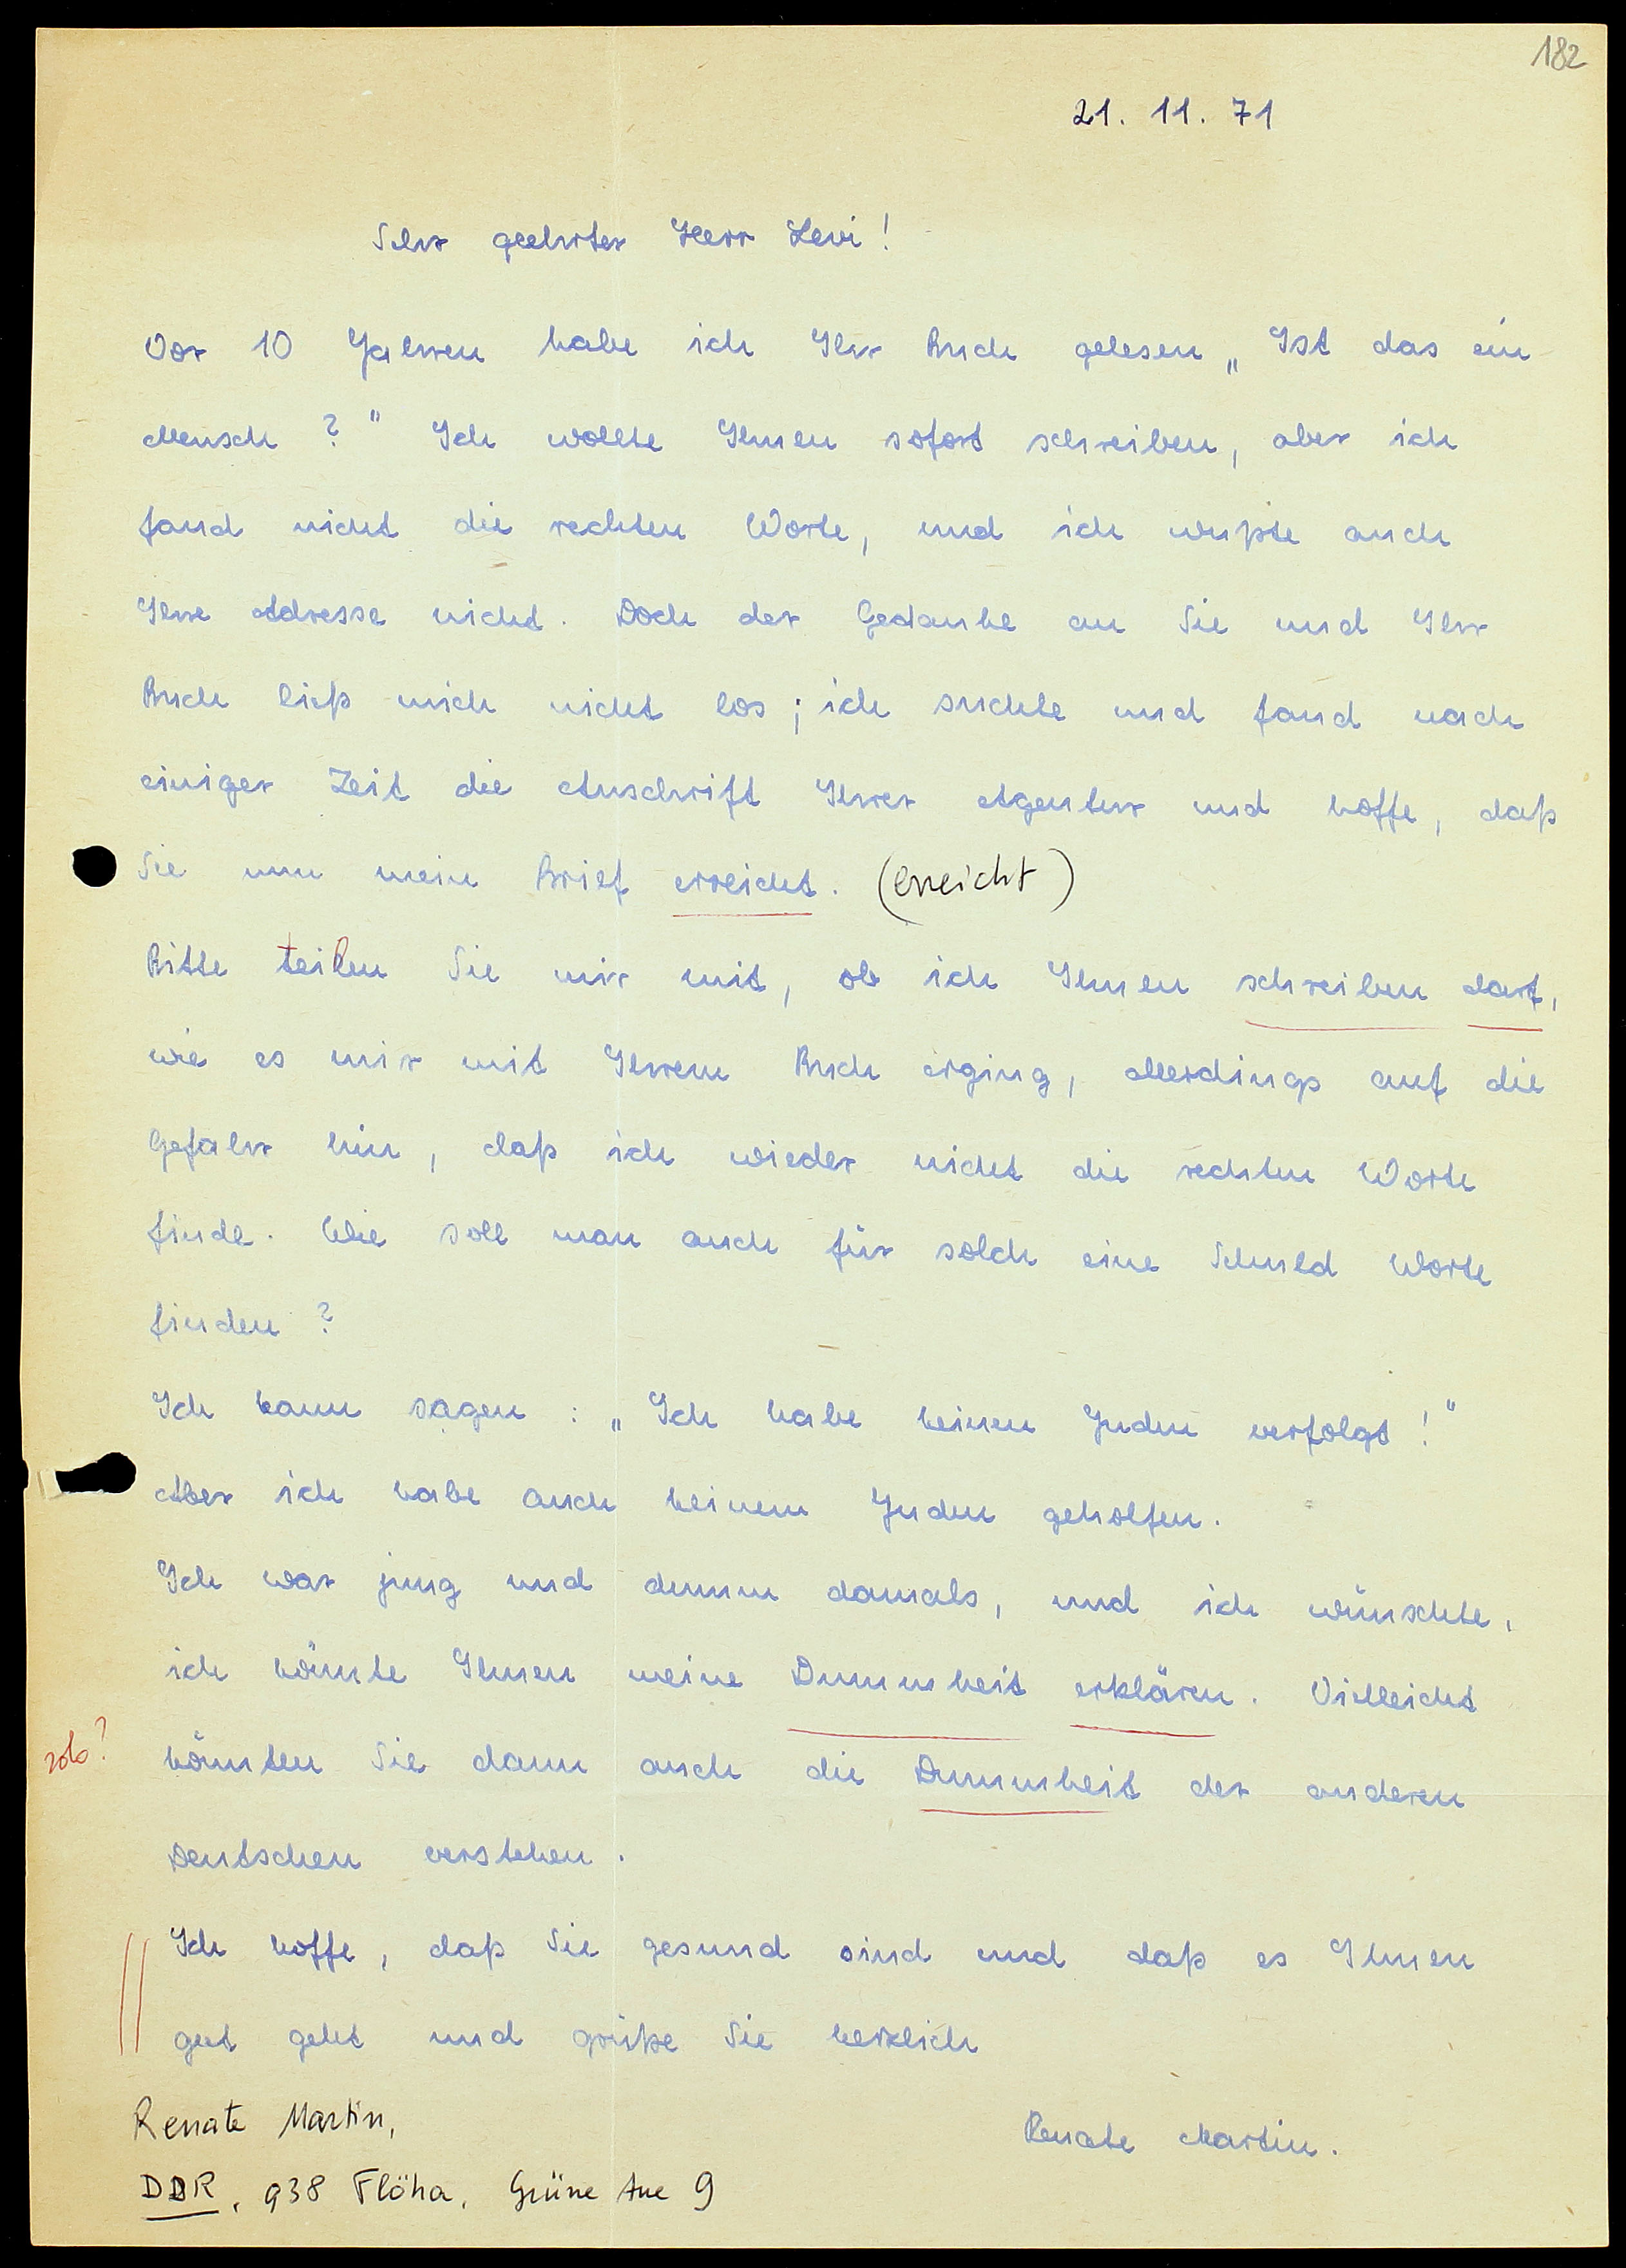 182
21. 11. 71
Sehr geehrter Herr Levi!
Vor 10 Jahren habe ich Ihr Buch gelesen „Ist das ein
Mensch?" Ich wollte Ihnen sofort schreiben, aber ich
fand nicht die rechten Worte, und ich wußte auch
Ihre Adresse nicht. Doch der Gedanke an Sie und Ihr
Buch ließ mich nicht los; ich suchte und fand nach
einiger Zeit die Anschrift Ihrer Agentur und hoffe, daß
Sie nun mein Brief erreicht. (erreicht)
Bitte teilen Sie mir mit, ob ich Ihnen schreiben darf,
wie es mir mit Ihrem Buch erging, allerdings auf die
Gefahr hin, daß ich wieder nicht die rechten Worte
finde. Wie soll man auch für solch eine Schuld Worte
finden?
Ich kann sagen: „Ich habe keinen Juden verfolgt!"
Aber ich habe auch keinem Juden geholfen.
Ich war jung und dumm damals, und ich wünschte,
ich könnte Ihnen meine Dummheit erklären. Vielleicht
könnten Sie dann auch die Dummheit der anderen
Deutschen verstehen.
Ich hoffe, daß Sie gesund sind und daß es Ihnen
gut geht und grüße Sie herzlich
Renate Martin.
Renate Martin,
DDR, 938 Flöha, Grüne Aue 9